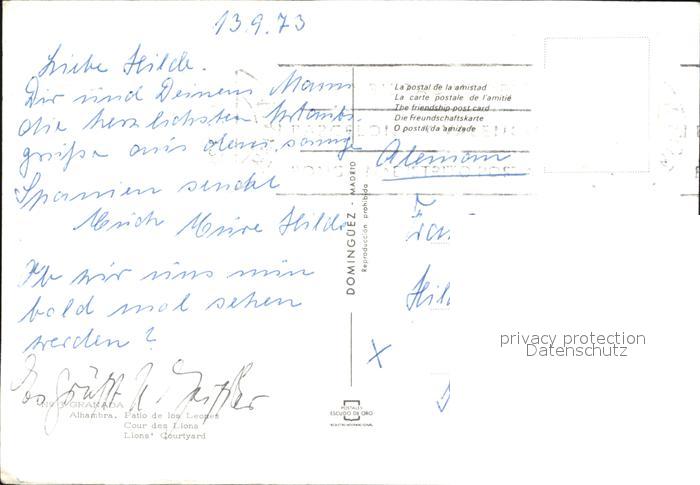 13.9.73
Liebe Hilde.
Dir und Deinem Mann
die herzlichsten Urlaubs-
grüße aus dem sonnige
Spanien sendet
Euch Eure Hilde
Ob wir uns nun
bald mal sehen
werden?
Es grüßt
GRANADA
Alhambra. Patio de los Leones
Cour des Lions
Lions' Courtyard
DOMINGUEZ - MADRID
Reproducción prohibida
POSTALES
ESCUDO DE ORO
La postal de la amistad
La carte postale de l'amitié
The friendship post card
Die Freundschaftskarte
O postal da amizade
Alemani
Hil
X
privacy protection
Datenschutz